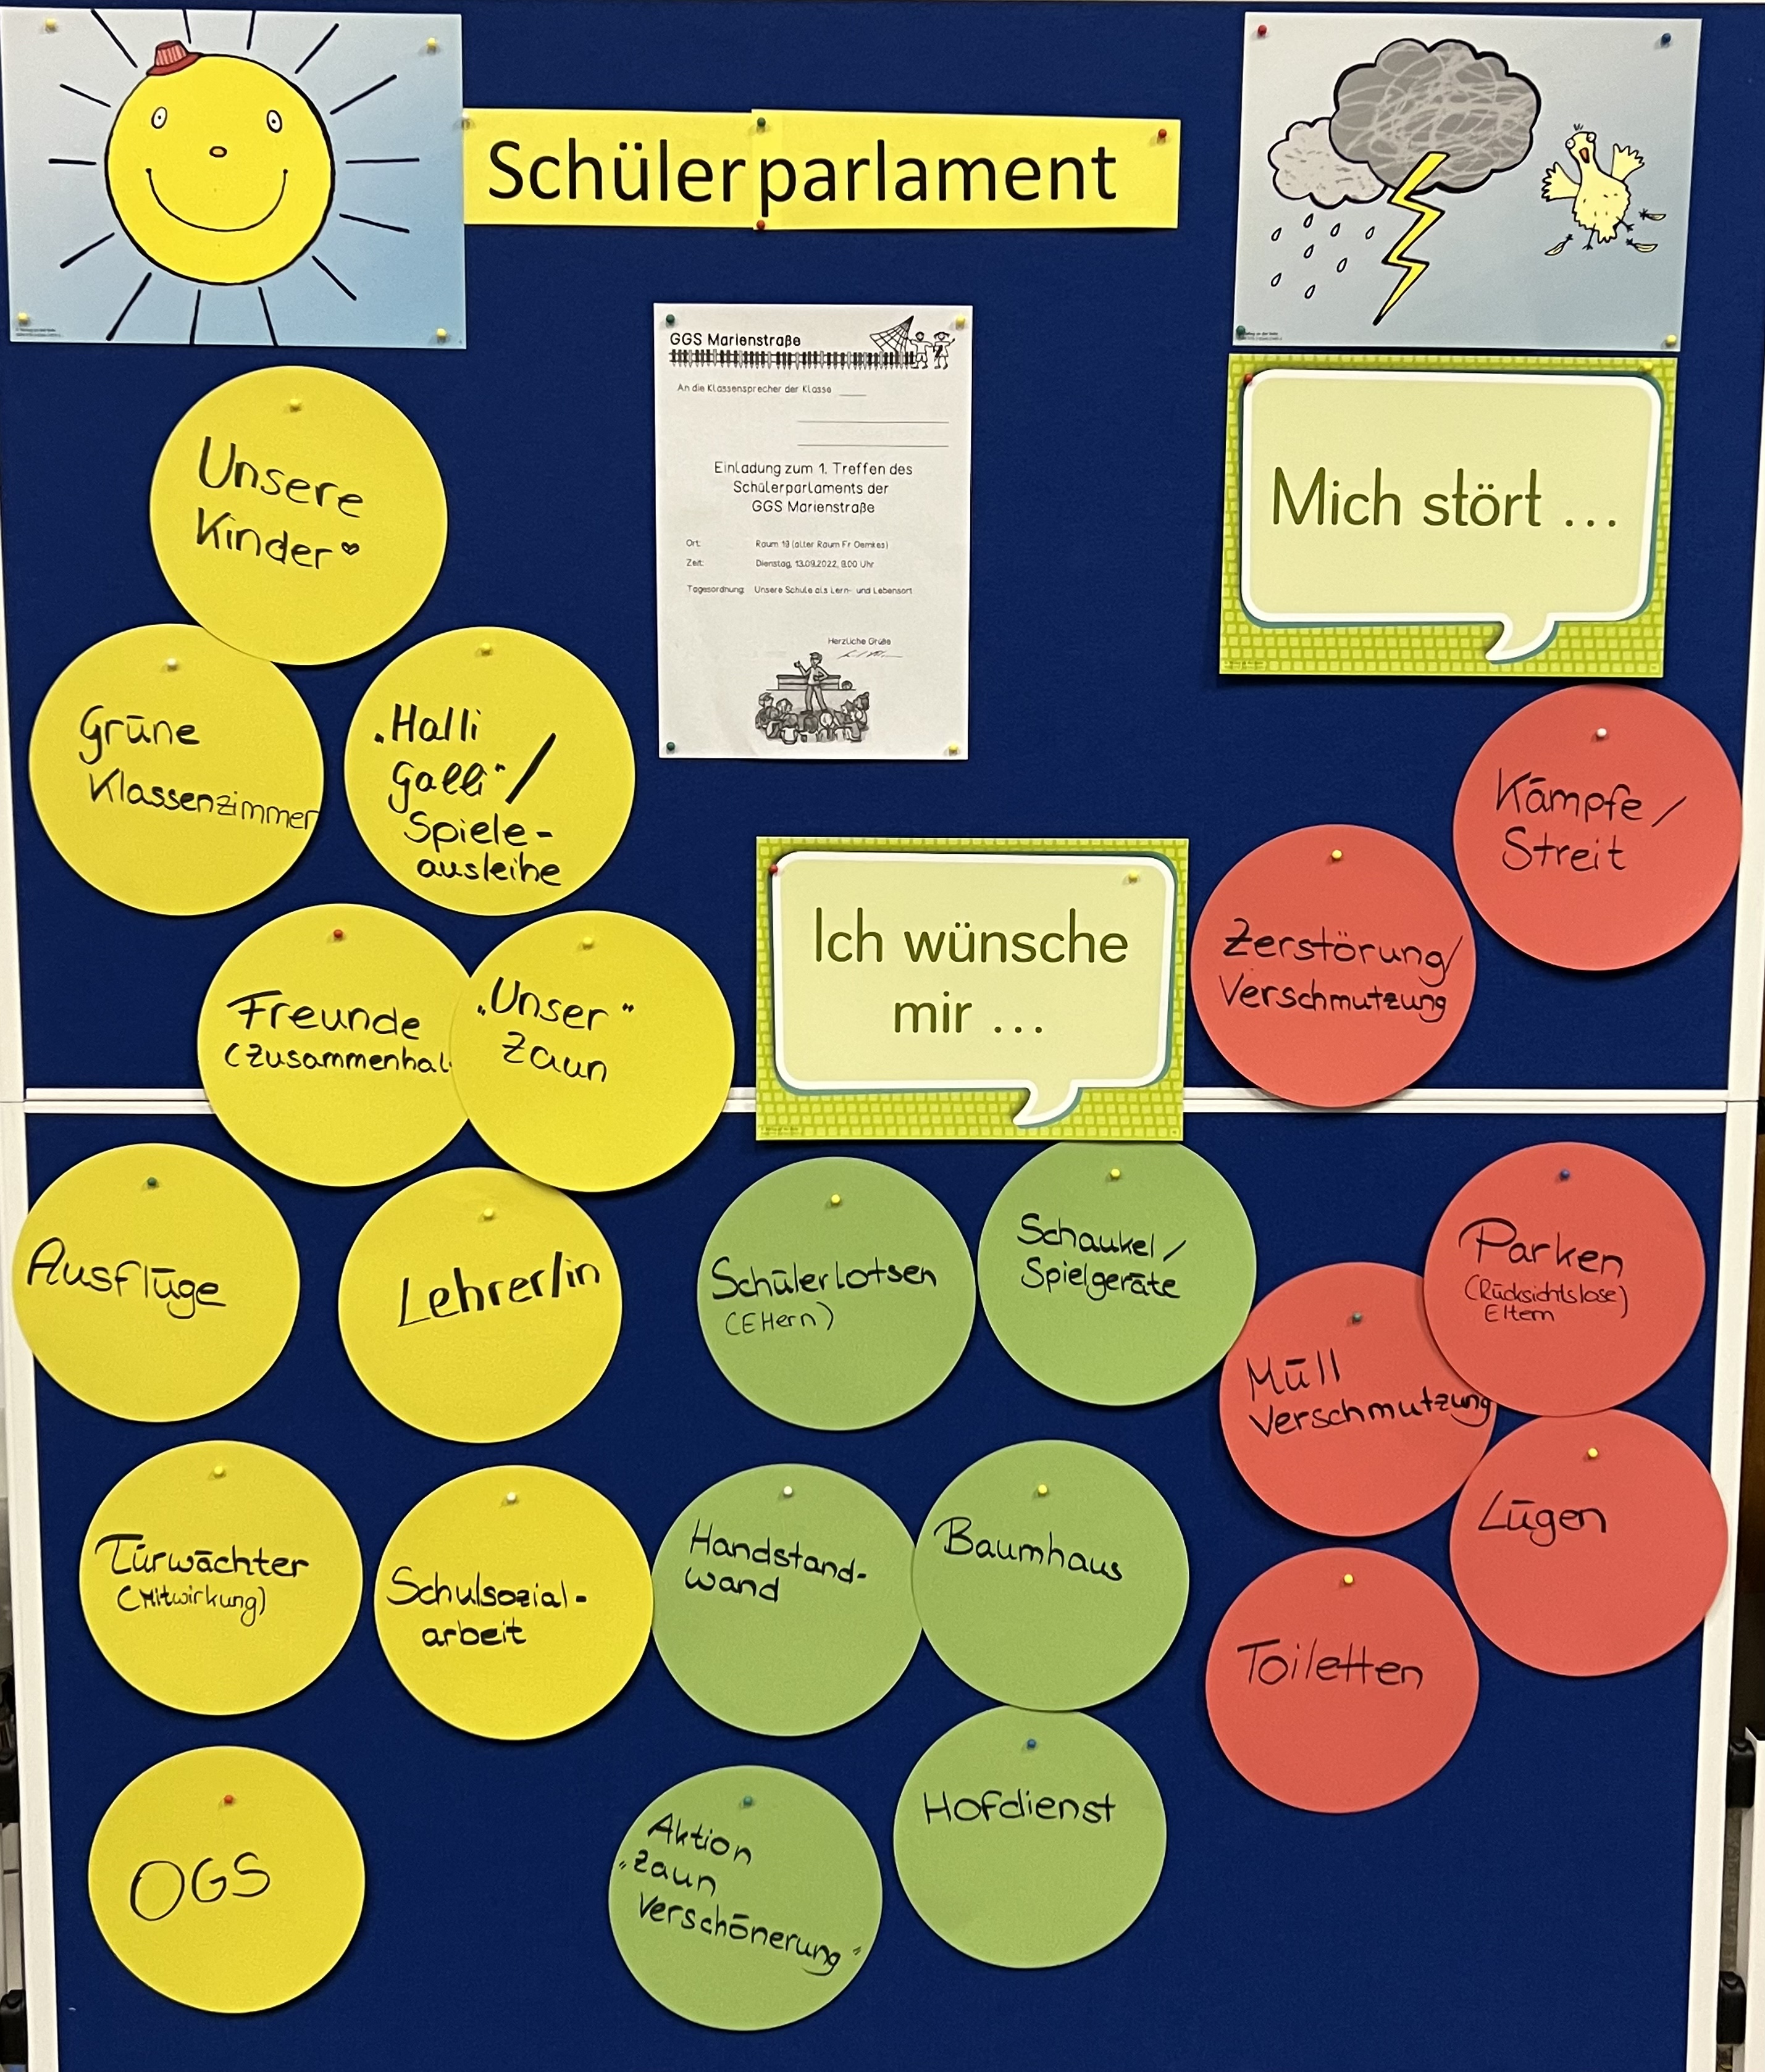 Schülerparlament
GGS Marienstraße
An die Klassensprecher der Klasse
Einladung zum 1. Treffen des
Schülerparlaments der
GGS Marienstraße
Ort: Raum 19 (alter Raum Fr
Zeit: Dienstag, 13.09.2022, 8.00 Uhr
Tagesordnung: Unsere Schule als Lern- und Lebensort
Herzliche Grüße
Unsere
Kinder
Grüne
Klassenzimmer
„Halli
Galli" /
Spiele-
ausleihe
Freunde
(Zusammenhal
„Unser"
Zaun
Ausflüge
Lehrer/in
Türwächter
(Mitwirkung)
Schulsozial-
arbeit
OGS
Ich wünsche
mir ...
Schülerlotsen
(Eltern)
Schaukel /
Spielgeräte
Handstand-
wand
Baumhaus
Aktion
„Zaun
Verschönerung"
Hofdienst
Mich stört ...
Kämpfe /
Streit
Zerstörung/
Verschmutzung
Parken
(Rücksichtslose)
Eltern
Müll
Verschmutzung
Lügen
Toiletten